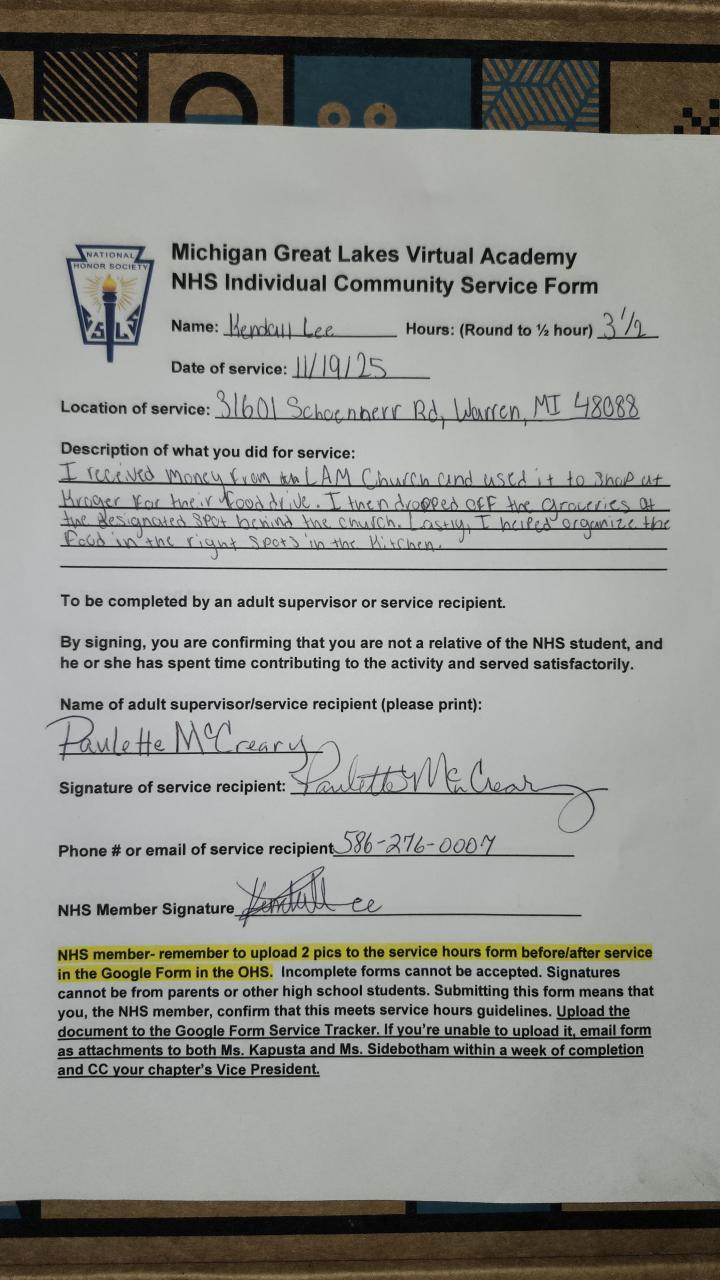 NATIONAL
HONOR SOCIETY
S L S
Michigan Great Lakes Virtual Academy
NHS Individual Community Service Form
Name: Kendall Lee Hours: (Round to ½ hour) 3 1/2
Date of service: 11/19/25
Location of service: 31601 Schoenherr Rd, Warren, MI 48088
Description of what you did for service:
I received money from LAM Church and used it to shop at
Kroger for their food drive. I then dropped off the groceries at
the designated spot behind the church. Lastly, I helped organize the
food in the right spots in the kitchen.
To be completed by an adult supervisor or service recipient.
By signing, you are confirming that you are not a relative of the NHS student, and
he or she has spent time contributing to the activity and served satisfactorily.
Name of adult supervisor/service recipient (please print):
Paulette McCreary
Signature of service recipient: Paulette McCreary
Phone # or email of service recipient 586-276-0007
NHS Member Signature Kendall Lee
NHS member- remember to upload 2 pics to the service hours form before/after service
in the Google Form in the OHS. Incomplete forms cannot be accepted. Signatures
cannot be from parents or other high school students. Submitting this form means that
you, the NHS member, confirm that this meets service hours guidelines. Upload the
document to the Google Form Service Tracker. If you're unable to upload it, email form
as attachments to both Ms. Kapusta and Ms. Sidebotham within a week of completion
and CC your chapter's Vice President.